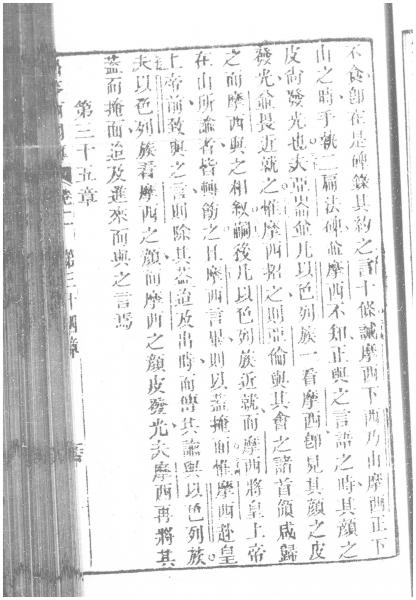 不食即在是碑錄其約之言十條誡摩西下西乃山摩西正下
山之時手執二扁法碑並摩西不知正與之言語之時其顏之
皮尚發光也夫亞倫並凡以色列族一看摩西即見其顏之皮
發光並畏近就之惟摩西招之則亞倫與其會之諸首領咸歸
之而摩西與之相敘嗣後凡以色列族近就而摩西將皇上帝
在山所諭者皆轉飭之且摩西言畢則以蓋掩面惟摩西赴皇
上帝前致與之言則除其蓋迨及出時而傳其諭與以色列族
夫以色列族看摩西之顏而摩西之顏皮發光夫摩西再將其
蓋而掩面迨及進來而與之言焉
第三十五章
卷二
第三十四章